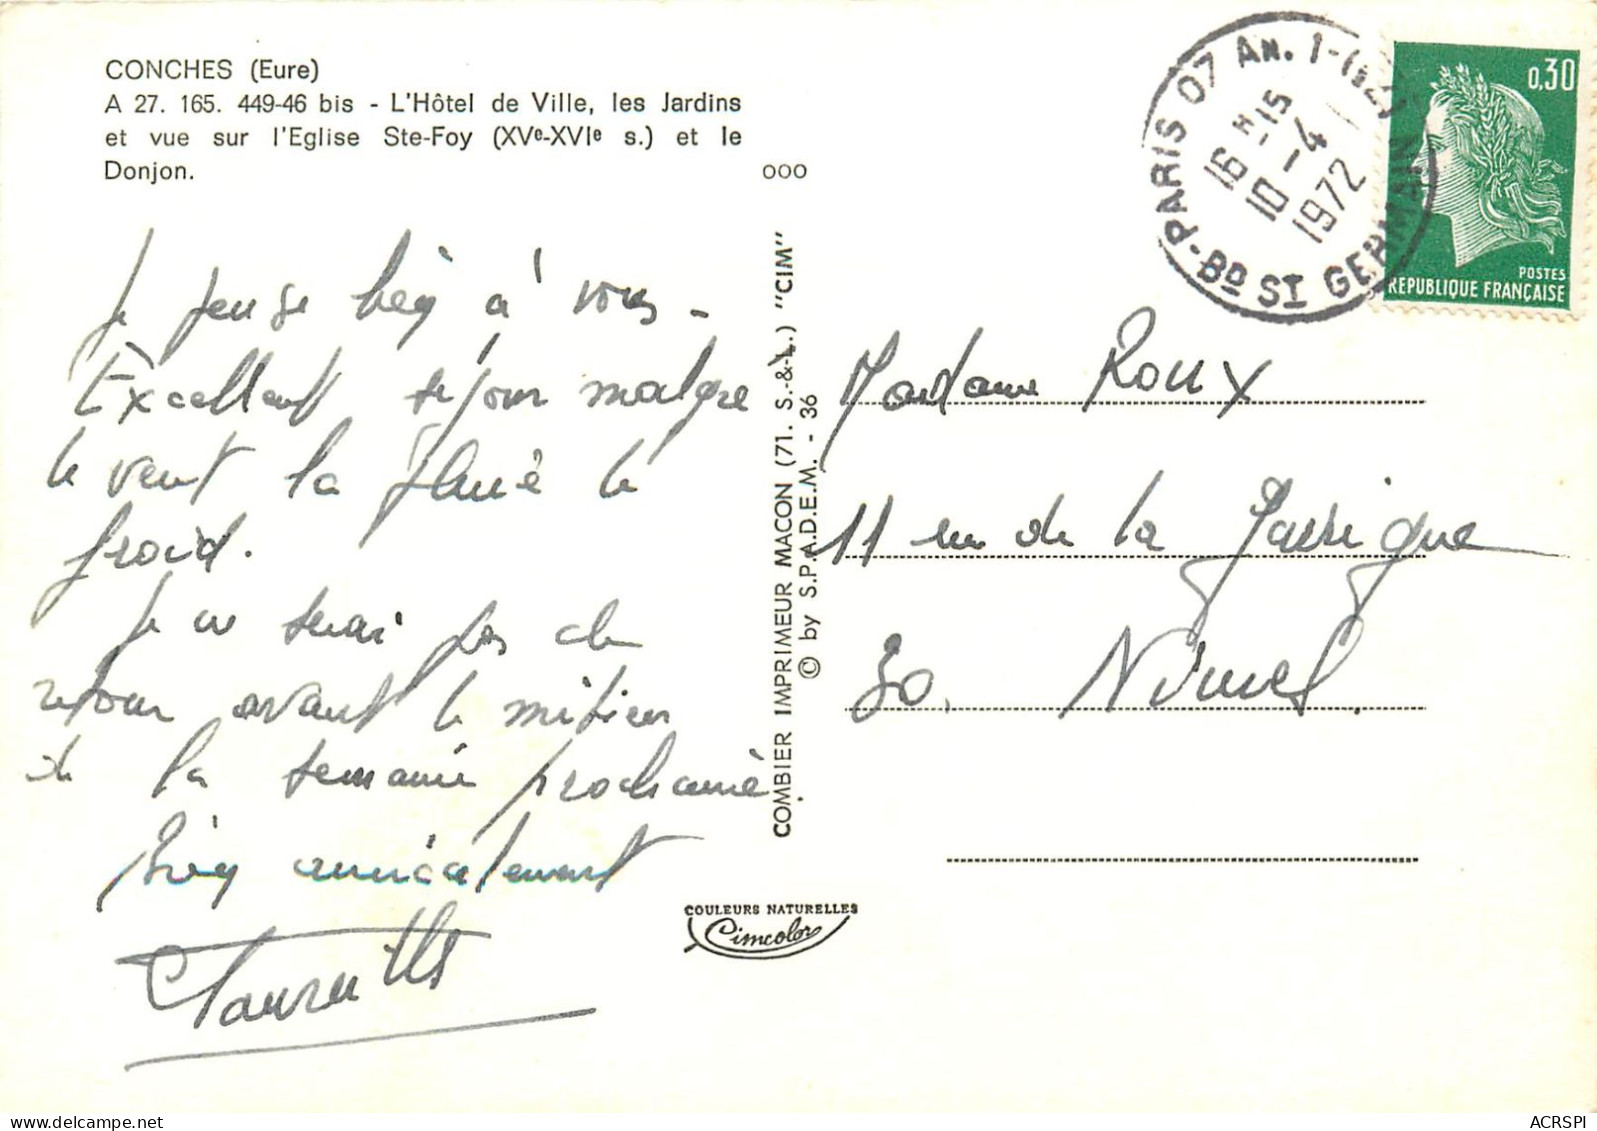 CONCHES (Eure)
A 27. 165. 449-46 bis - L'Hôtel de Ville, les Jardins
et vue sur l'Eglise Ste-Foy (XVe-XVIe s.) et le
Donjon.
ooo
PARIS 07 AN. 1
PARIS - BD ST GERMAIN
16 H -15
10 -4
1972
0,30
POSTES
REPUBLIQUE FRANÇAISE
Je pense bien à vous -
Excellent séjour malgré
le vent la pluie le
froid.
Je ne serai pas de
retour avant le milieu
de la semaine prochaine
Bien amicalement
COMBIER IMPRIMEUR MACON (71. S.-&-L.) "CIM"
© by S.P.A.D.E.M. - 36
COULEURS NATURELLES
Cimcolor
Madame Roux
11 rue de la Garrigue
30. Nimes.
ACRSPI